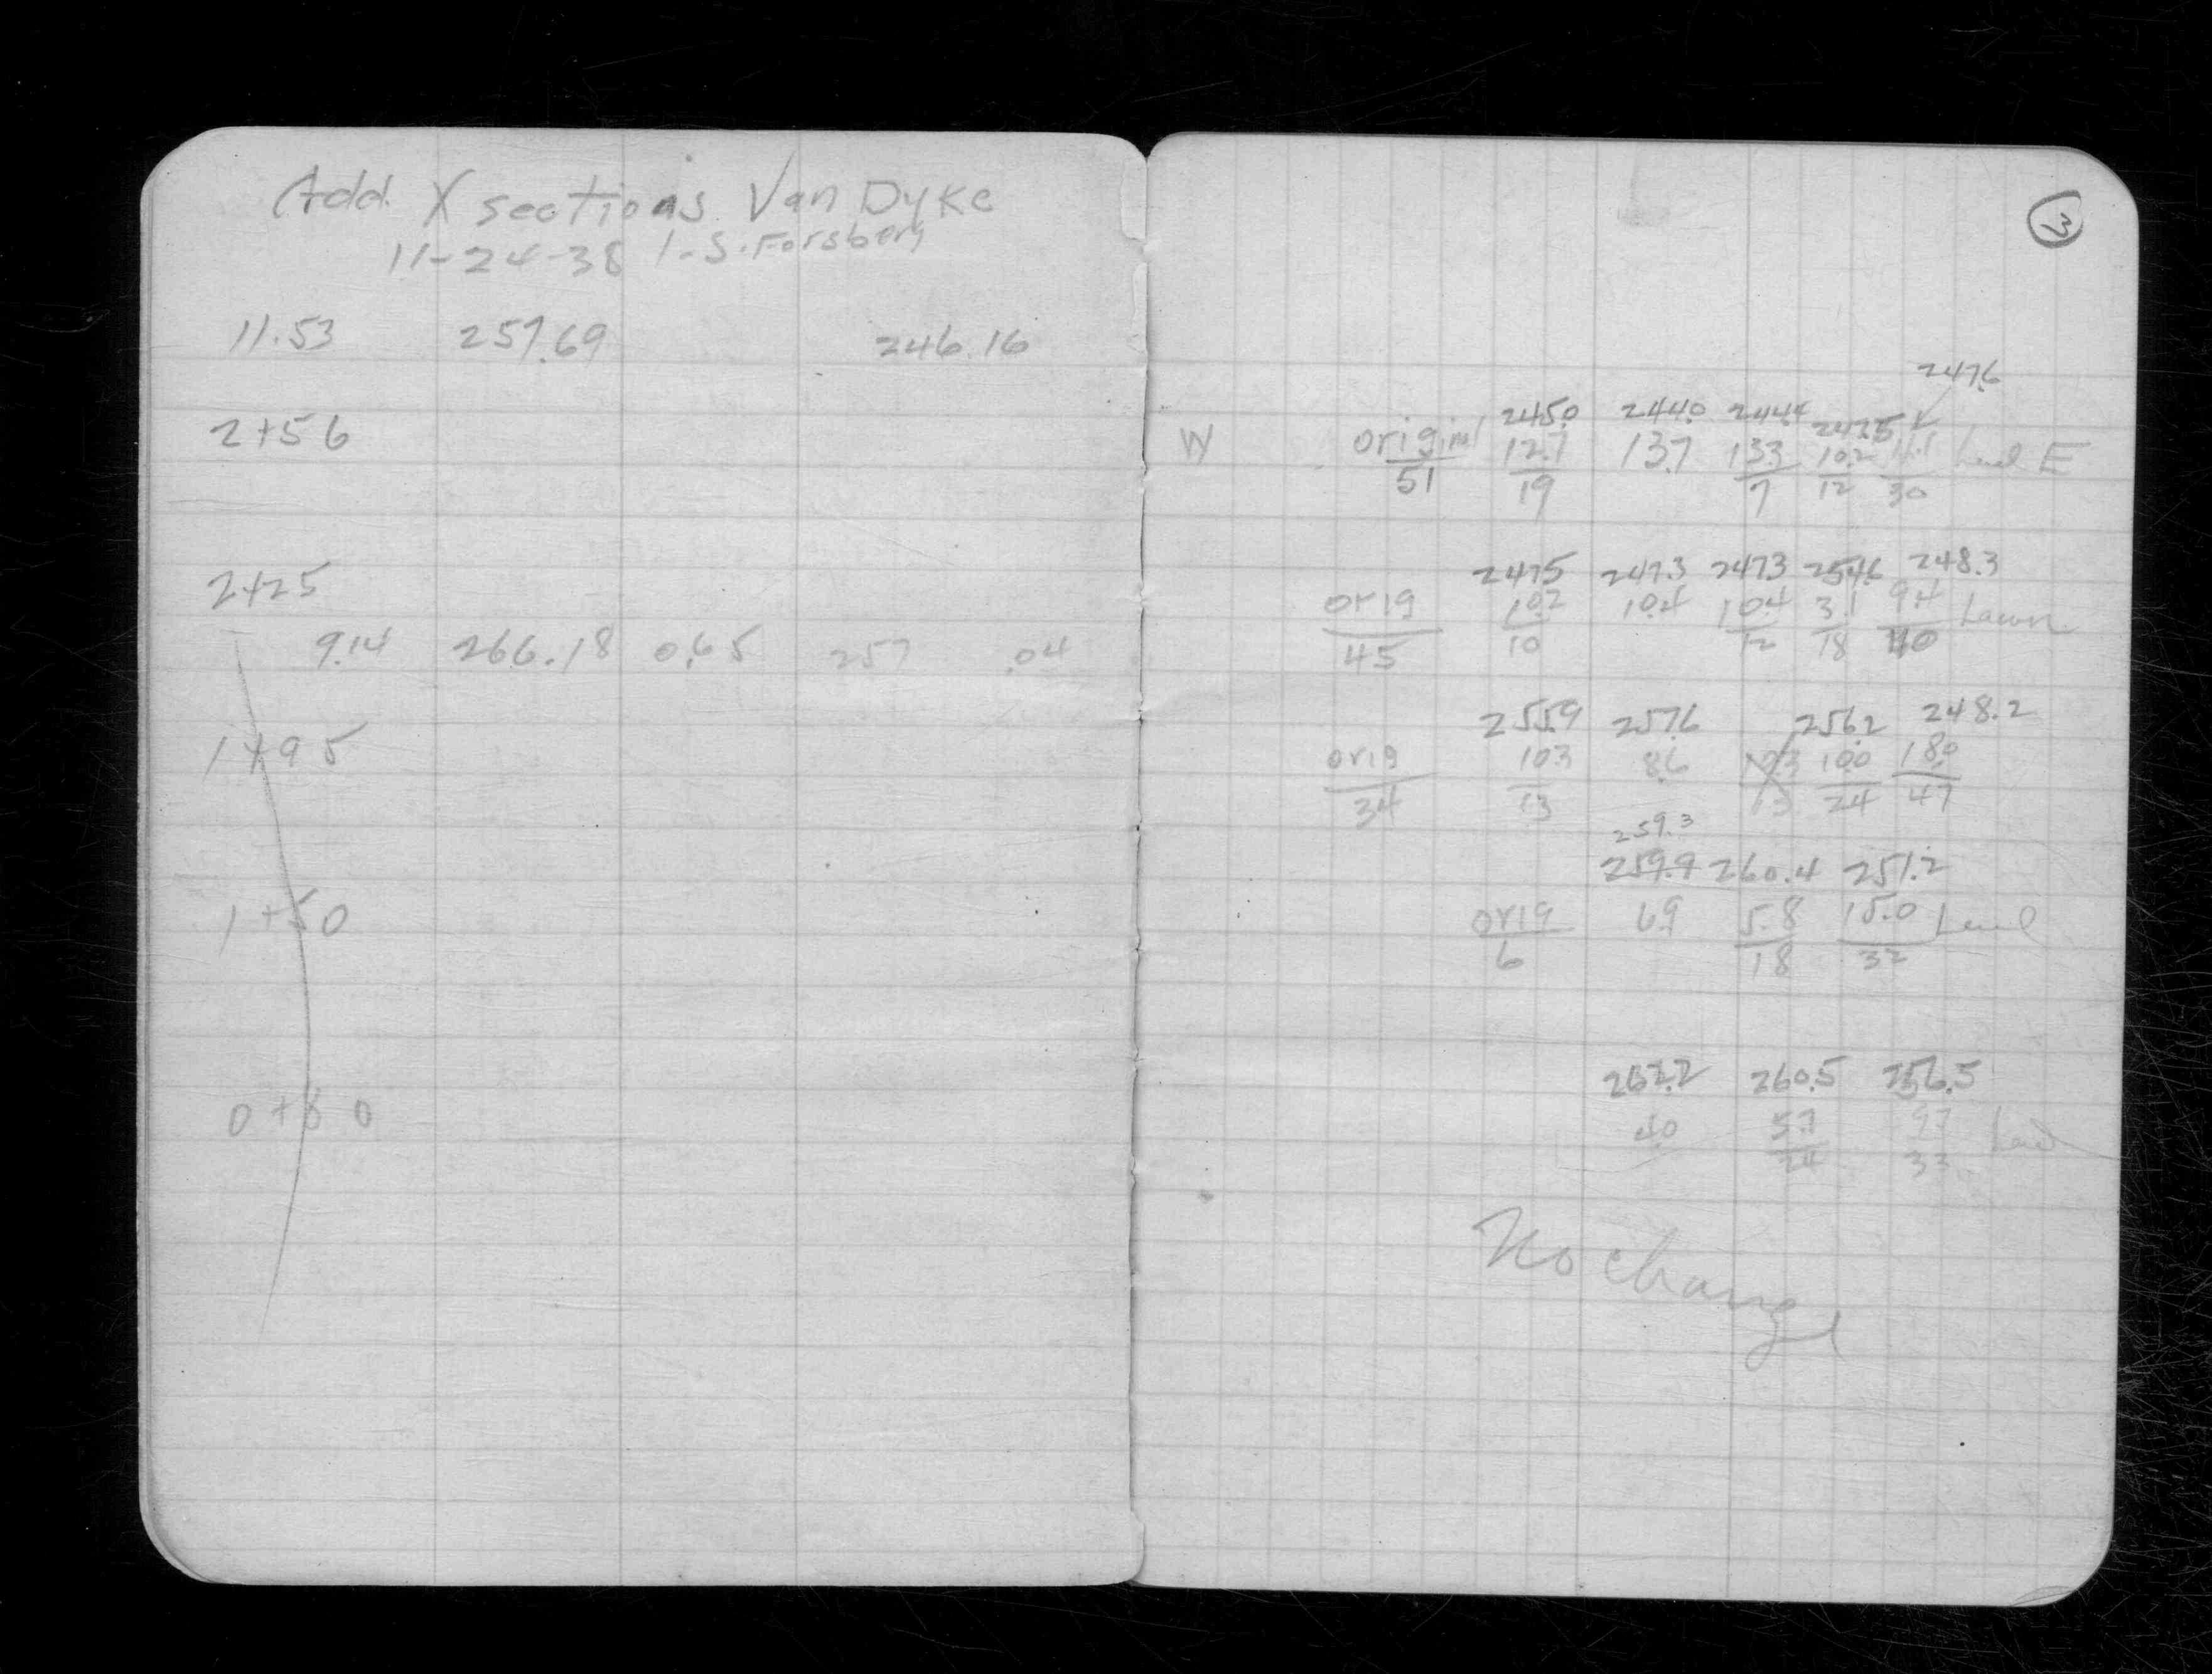 Add. X sections Van Dyke
11-24-38 I.S. Forsberg
11.53 257.69 246.16
2+56
2+25
9.14 266.18 0.65 257 .04
1+95
1+50
0+80
3
247.6
245.0 244.0 244.4 247.5
W original 12.7 13.7 13.3 10.2 Level E
51 19 7 12 30
247.5 247.3 247.3 254.6 248.3
orig 10.2 10.4 10.4 3.1 9.4 Lawn
45 10 12 18 40
255.9 257.6 256.2 248.2
orig 10.3 8.6 10.3 10.0 18.0
34 13 13 24 47
259.3
259.9 260.4 251.2
orig 6.9 5.8 15.0 Level
6 18 32
262.2 260.5 256.5
4.0 5.7 9.7
24 33
No change